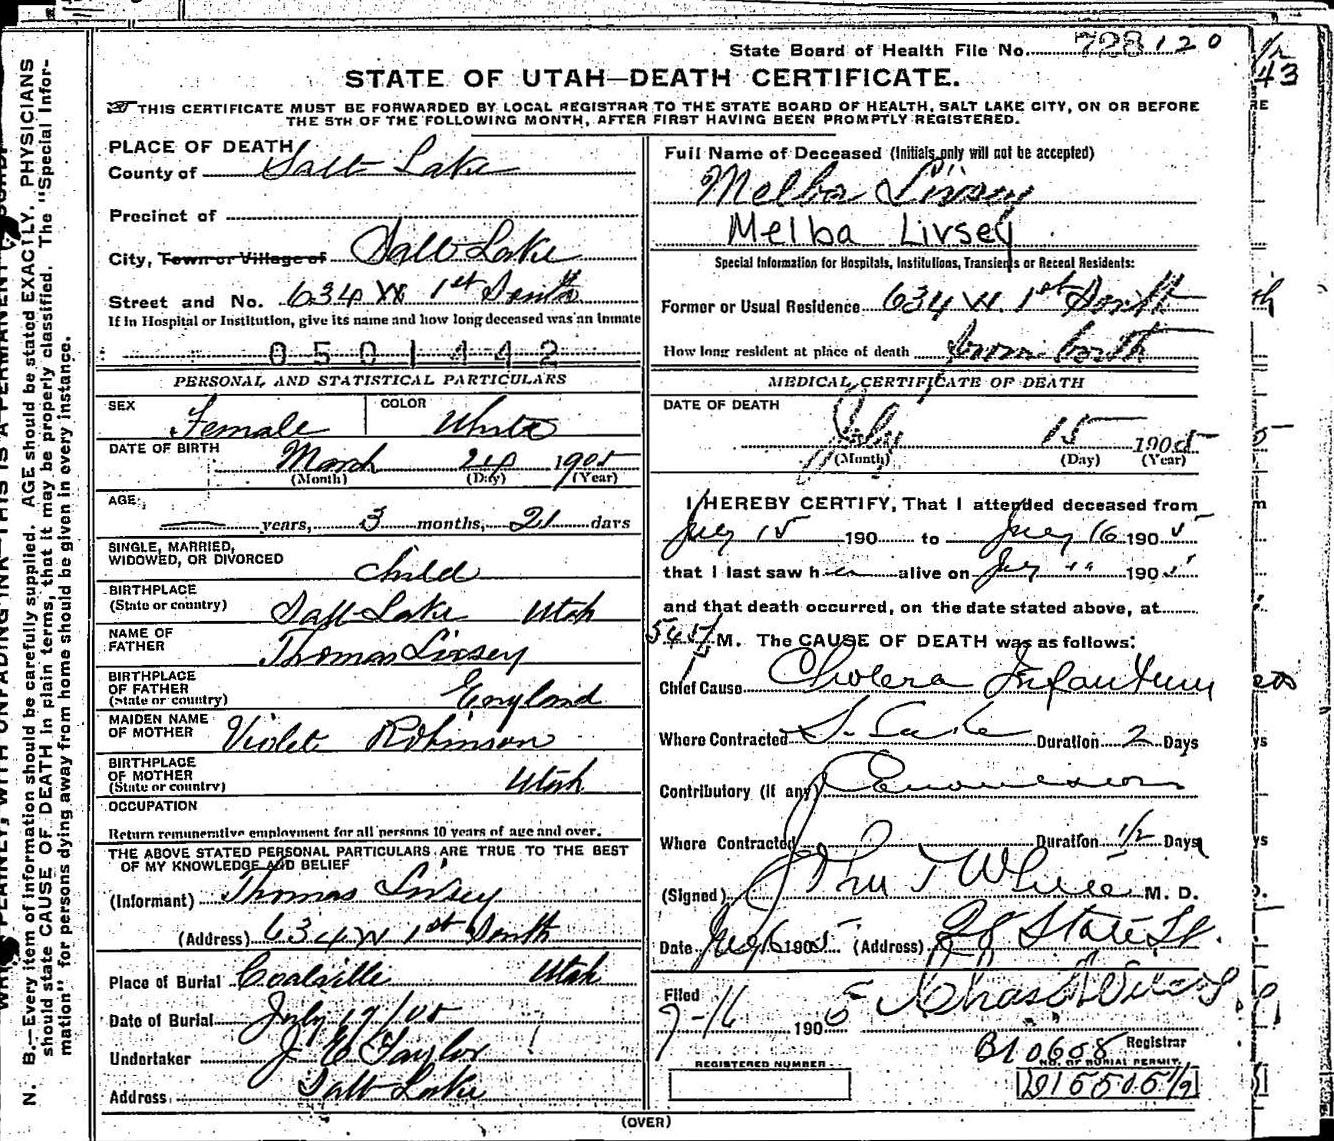 State Board of Health File No. 728120
STATE OF UTAH—DEATH CERTIFICATE.
THIS CERTIFICATE MUST BE FORWARDED BY LOCAL REGISTRAR TO THE STATE BOARD OF HEALTH, SALT LAKE CITY, ON OR BEFORE
THE 5TH OF THE FOLLOWING MONTH, AFTER FIRST HAVING BEEN PROMPTLY REGISTERED.
PLACE OF DEATH
County of Salt Lake
Precinct of
City, Town or Village of Salt Lake
Street and No. 634 W 1st South
If in Hospital or Institution, give its name and how long deceased was an inmate
0501442
PERSONAL AND STATISTICAL PARTICULARS
SEX Female COLOR White
DATE OF BIRTH March 24 1905
(Month) (Day) (Year)
AGE; years, 3 months, 21 days
SINGLE, MARRIED,
WIDOWED, OR DIVORCED Child
BIRTHPLACE
(State or country) Salt Lake Utah
NAME OF
FATHER Thomas Livsey
BIRTHPLACE
OF FATHER
(State or country) England
MAIDEN NAME
OF MOTHER Violete Robinson
BIRTHPLACE
OF MOTHER
(State or country) Utah
OCCUPATION
Return remunerative employment for all persons 10 years of age and over.
THE ABOVE STATED PERSONAL PARTICULARS ARE TRUE TO THE BEST
OF MY KNOWLEDGE AND BELIEF
(Informant) Thomas Livsey
(Address) 634 W 1st South
Place of Burial Coalville Utah
Date of Burial July 17/05
Undertaker J E Taylor
Address Salt Lake
Full Name of Deceased (Initials only will not be accepted)
Melba Livsey
Melba Livsey
Special Information for Hospitals, Institutions, Transients or Recent Residents:
Former or Usual Residence 634 W. 1st South
How long resident at place of death from birth
MEDICAL CERTIFICATE OF DEATH
DATE OF DEATH
July 15 1905
(Month) (Day) (Year)
I HEREBY CERTIFY, That I attended deceased from
July 15 190 to July 16 1905
that I last saw her alive on July " 1905
and that death occurred, on the date stated above, at
545 M. The CAUSE OF DEATH was as follows:
Chief Cause Cholera Infantum
Where Contracted S. Lake Duration 2 Days
Contributory (if any)
Where Contracted Duration 1/2 Days
(Signed) M. D.
Date July 16 1905 (Address) State St.
Filed
7-16 1905 Chas
Registrar
B10608
NO. OF BURIAL PERMIT.
REGISTERED NUMBER
(OVER)
N. B.—Every item of information should be carefully supplied. AGE should be stated EXACTLY. PHYSICIANS
should state CAUSE OF DEATH in plain terms, that it may be properly classified. The "Special Infor-
mation" for persons dying away from home should be given in every instance.
43